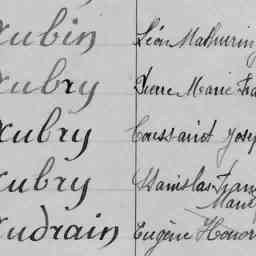 Aubin Léon Mathurin
Aubry Pierre Marie Fra
Aubry Toussaint Josep
Aubry Stanislas Franç
Marie
Audrain Eugène Honor